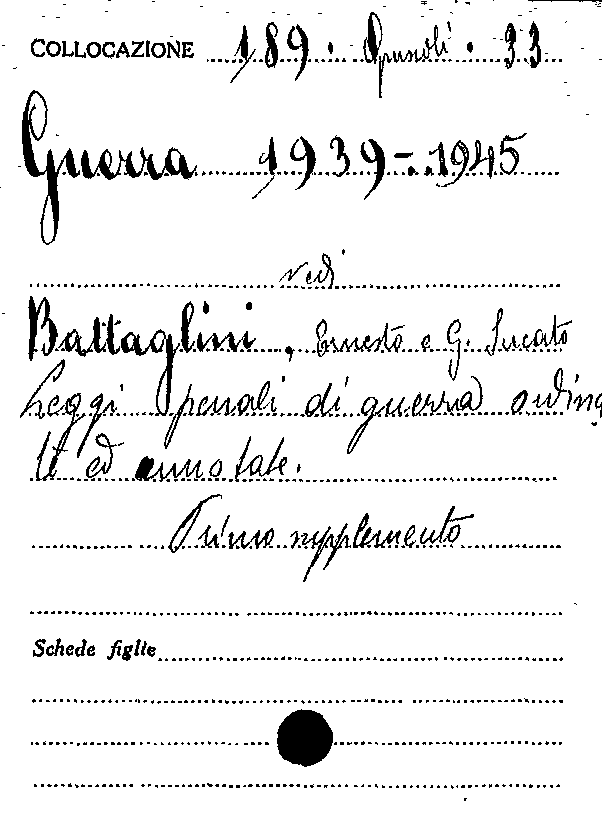 COLLOCAZIONE 189. Opuscoli. 33
Guerra 1939-1945
vedi
Battaglini, Ernesto e G. Sucato
Leggi penali di guerra ordina
te ed annotate.
Primo supplemento
Schede figlie